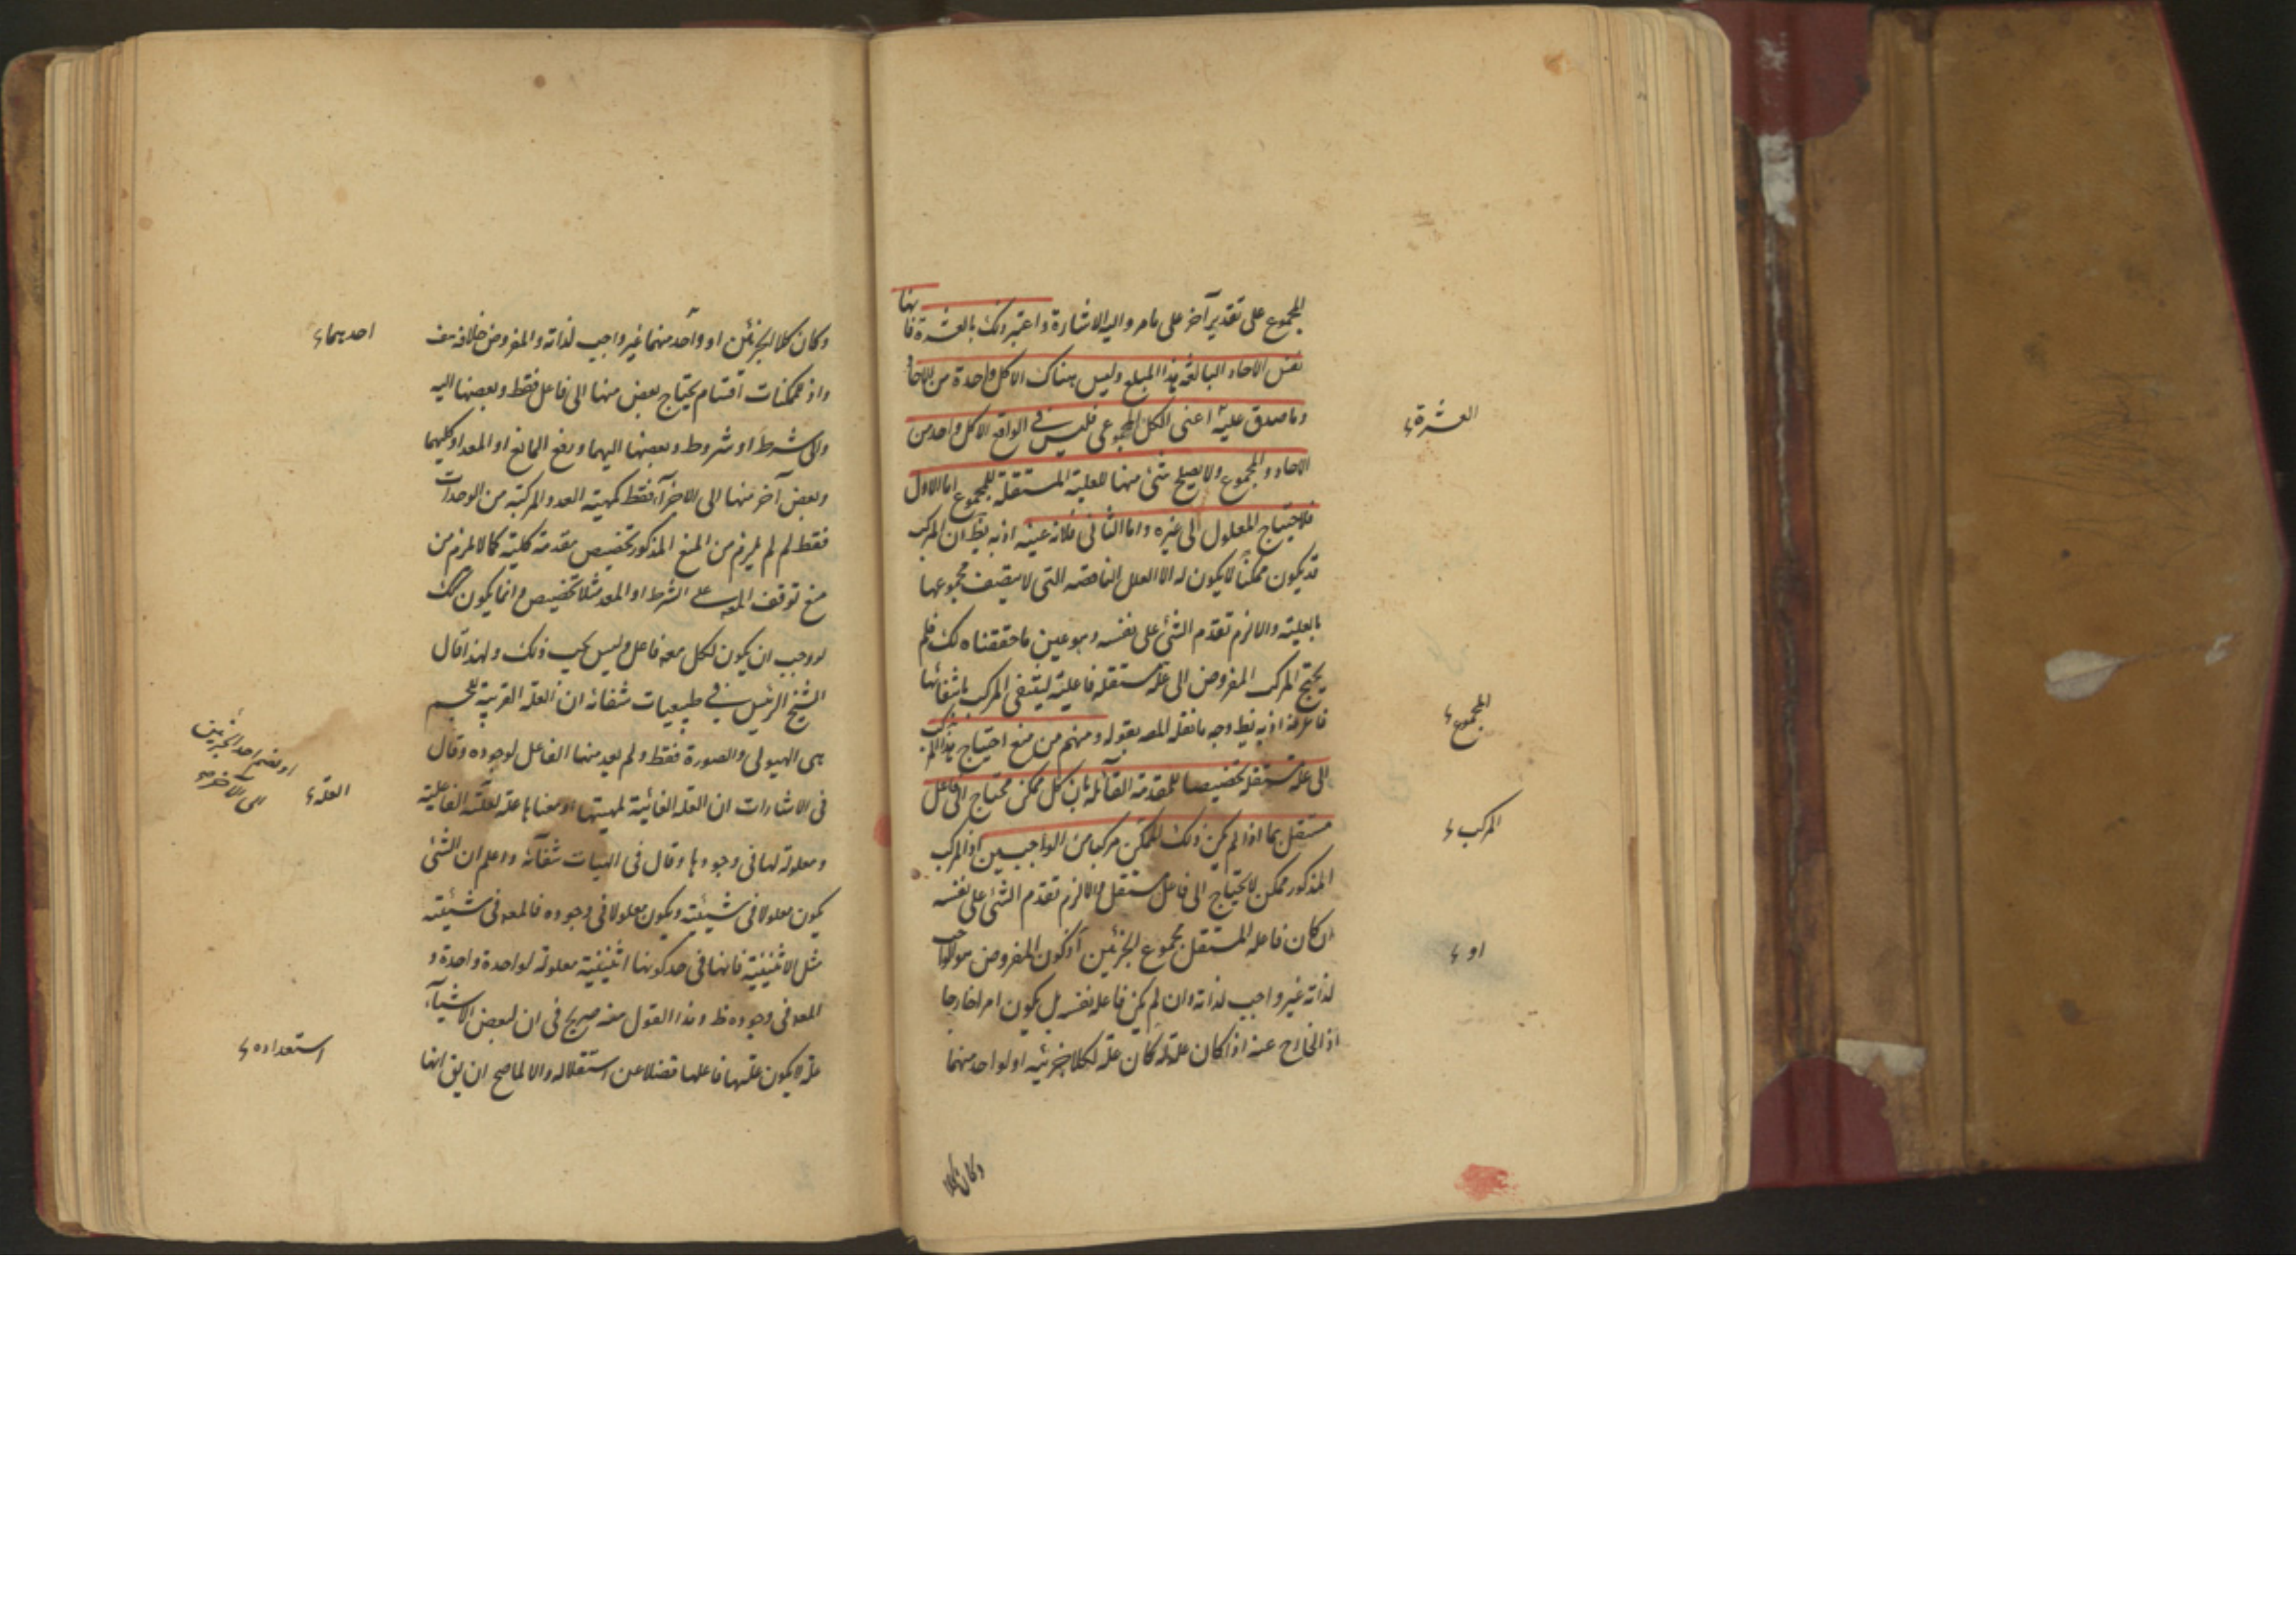 المجموع على تقدير آخر على ما مر واليه الاشارة واعتبر ذلك بالعشرة فانها
نفس الآحاد البالغة هذا المبلغ وليس هناك الا كل واحدة من الآحاد
وما صدق عليه اعنى الكل المجموعى فليس فى الواقع الا كل واحد من
الآحاد والمجموع ولا يصلح شئ منها للعلية المستقلة للمجموع اما الاول
فلاحتياج المعلول الى غيره واما الثانى فلانه عينه اذ به يظ ان المركب
قد يكون ممكنا لا يكون له الا العلل الناقصة التى لا يتصف مجموعها
بالعلية والا لزم تقدم الشئ على نفسه وهو عين ما حققناه لك فلم
يحتج المركب المفروض الى علة مستقلة فاعلية لينتفى المركب بانتفائها
فاعرفه اذ به يظ وجه ما نقله المص بقوله ومنهم من منع احتياج هذا المركب
الى علة مستقلة تخصيصا للمقدمة القائلة بان كل ممكن محتاج الى فاعل
مستقل بما اذا لم يكن ذلك الممكن مركبا من الواجبين اذ المركب
المذكور ممكن لا يحتاج الى فاعل مستقل والا لزم تقدم الشئ على نفسه
ان كان فاعله المستقل مجموع الجزئين او كون المفروض واجب
لذاته غير واجب لذاته وان لم يكن فاعله نفسه بل يكون امرا خارجا
اذ الخارج عنه اذا كان علة له كان علة لكلا جزئيه او لواحد منهما
وكان كلا
العشرة
المجموع
المركب
او
وكان كلا الجزئين او واحد منهما غير واجب لذاته والمفروض خلافه هف
واذ للممكنات اقسام يحتاج بعض منها الى فاعل فقط وبعضها اليه
والى شرط او شروط وبعضها اليهما ورفع المانع او المعد او كليهما
وبعض آخر منها الى الاجزاء فقط كمهية العدد المركبة من الوحدات
فقط لم يلزم من المنع المذكور تخصيص مقدمة كلية كما لا يلزم من
منع توقف المعه على الشرط او المعد مثلا تخصيص وانما يكون كك
لو وجب ان يكون لكل معه فاعل وليس يجب ذلك ولهذا قال
الشيخ الرئيس فى طبيعيات شفائه ان العلة القريبة للجسم
هى الهيولى والصورة فقط ولم يعد منها الفاعل لوجوده وقال
فى الاشارات ان العلة الغائية لمهيتها ومعناها علة لعلية الفاعلية
ومعلولة لها فى وجودها وقال فى الهيات شفائه واعلم ان الشئ
يكون معلولا فى شيئيته ويكون معلولا فى وجوده فالمعه فى شيئيته
مثل الاثنينية فانها فى حد كونها اثنينية معلولة لواحدة واحدة و
المعه فى وجوده ظ وهذا القول منه صريح فى ان لبعض الاشياء
علة لا يكون علتها فاعلها فضلا عن استقلاله والا لما صح ان يق انها
احديهما
العلة
او نضم احد الجزئين
الى الآخر
استعداده